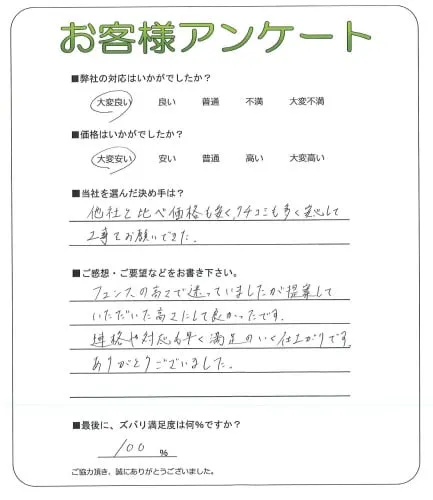 お客様アンケート
■弊社の対応はいかがでしたか？
大変良い 良い 普通 不満 大変不満
■価格はいかがでしたか？
大変安い 安い 普通 高い 大変高い
■当社を選んだ決め手は？
他社と比べ価格も安く,クチコミも多く安心して
工事をお願いできた.
■ご感想・ご要望などをお書き下さい。
フェンスの高さで迷っていましたが提案して
いただいた高さにして良かったです.
連絡や対応も早く満足のいく仕上がりです.
ありがとうございました.
■最後に、ズバリ満足度は何%ですか？
100 %
ご協力頂き、誠にありがとうございました。